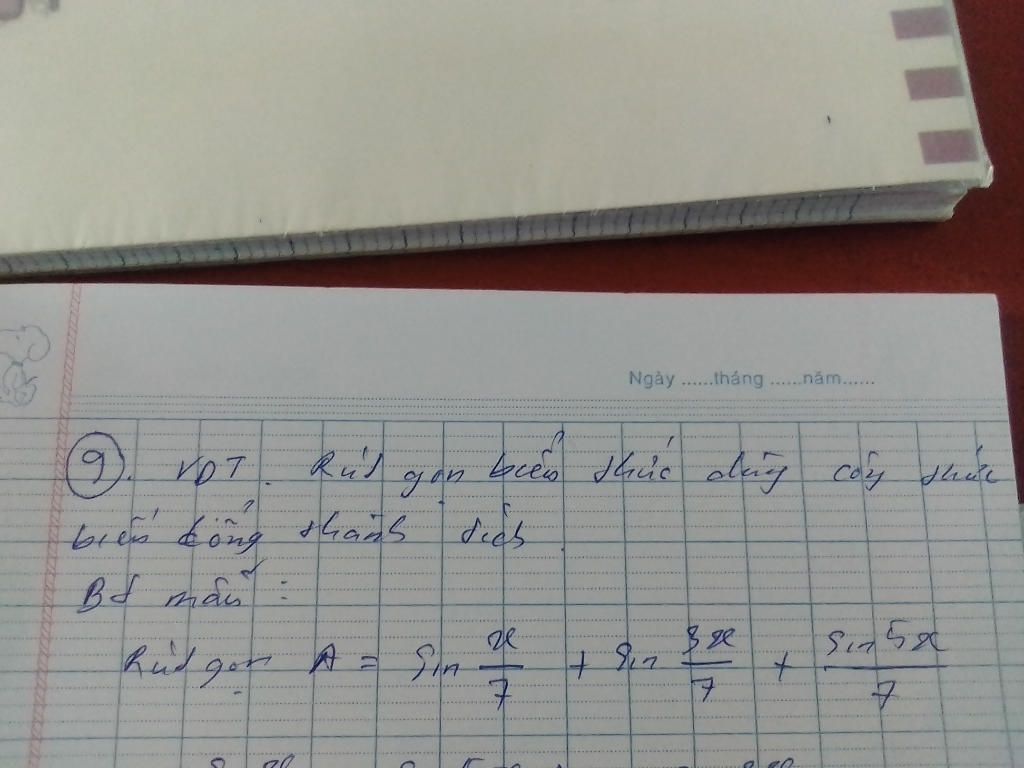 Ngày ......tháng ......năm......
9. VDT. Rút gọn biểu thức dùng công thức
biến tổng thành tích.
Bt mẫu :
Rút gọn A = sin x/7 + sin 3x/7 + sin 5x/7